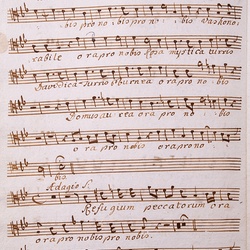 bis pro no bis pro no bis
rabile ora pro nobis Rosa mystica turris
Davidica turris eburnea ora pro no bis
Domus aurea ora pro no bis
ora pro nobis ora pro no
bis.
Adagio S.
Refugium peccatorum ora
ora pro nobis pro nobis.